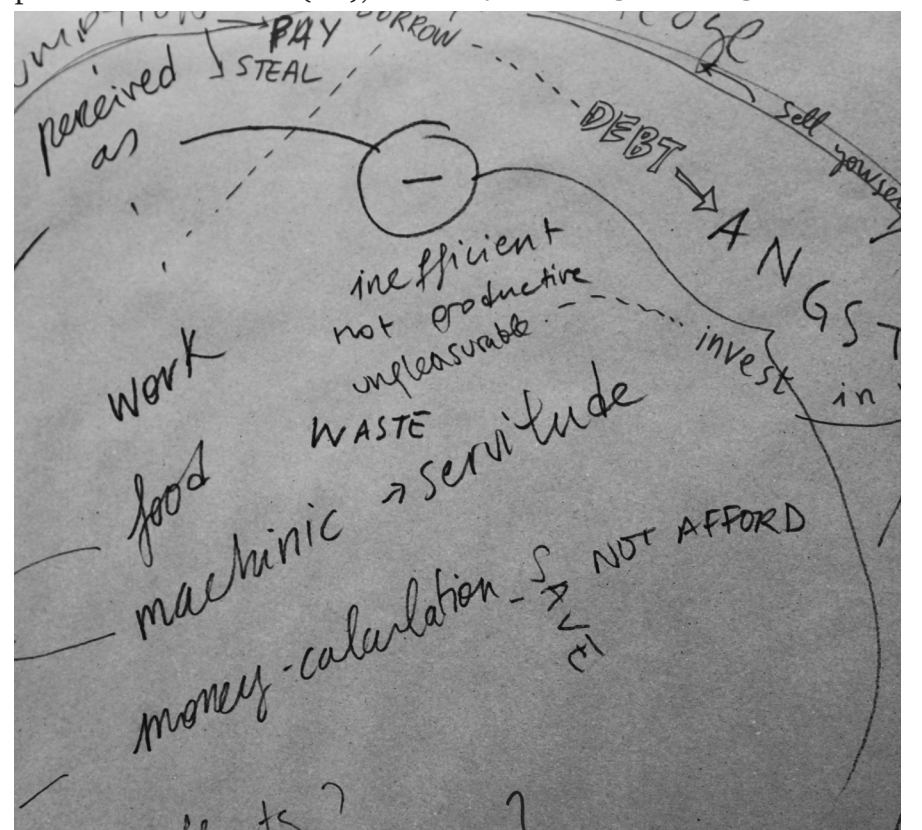 PAY
BORROW
STEAL
perceived
as
sell
yourself
DEBT → ANGST
–
inefficient
not productive
unpleasurable
invest
in
WASTE
work
food
machinic → servitude
money-calculation - SAVE
NOT AFFORD
?